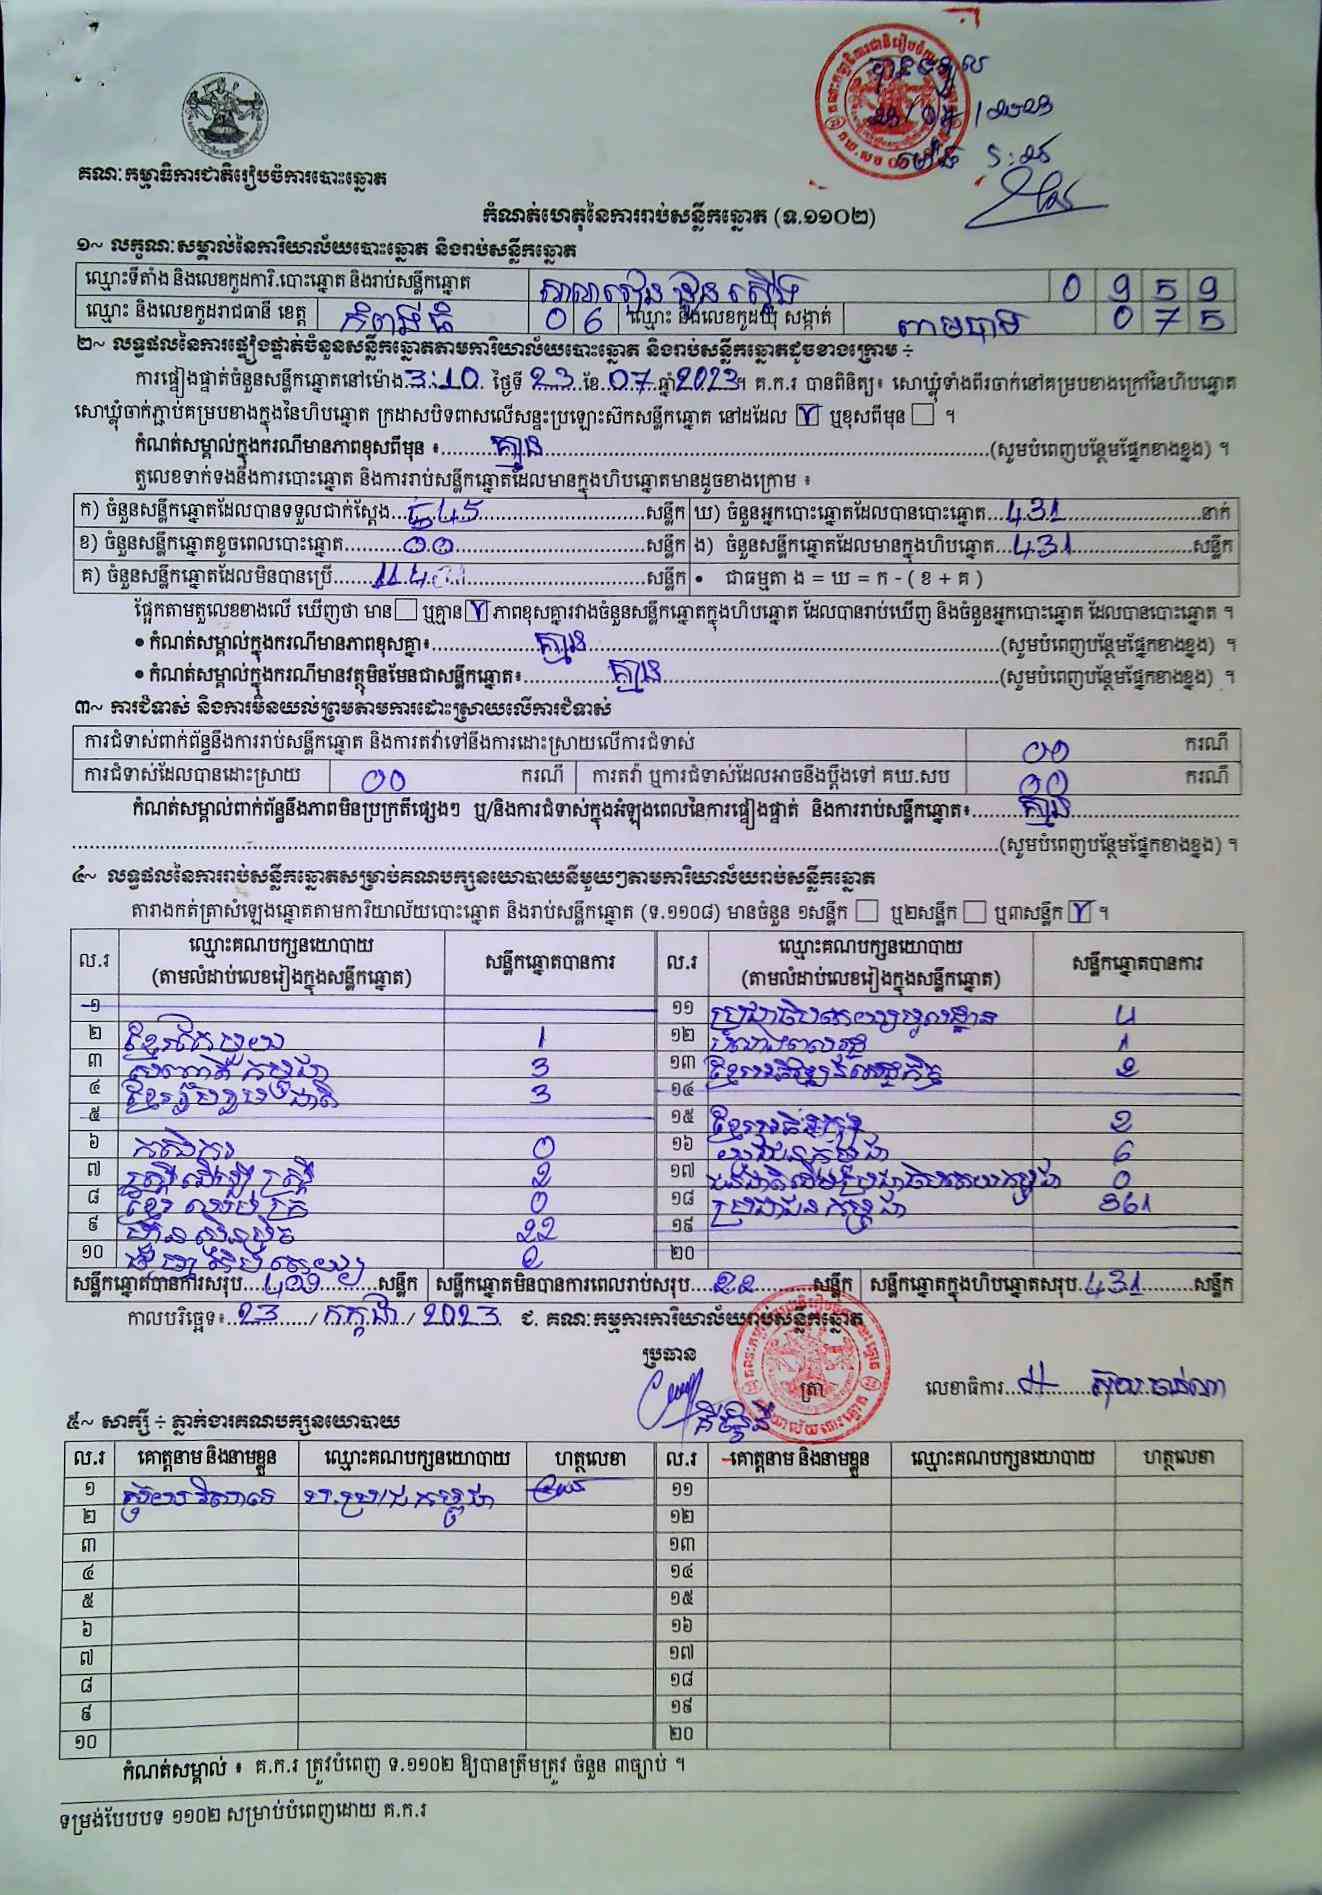 គណៈកម្មាធិការជាតិរៀបចំការបោះឆ្នោត
បានទទួល
កំណត់ហេតុនៃការរាប់សន្លឹកឆ្នោត (ទ.១១០២)
១~ លក្ខណៈសម្គាល់នៃការិយាល័យបោះឆ្នោត និងរាប់សន្លឹកឆ្នោត
ឈ្មោះទីតាំង និងលេខកូដការិ.បោះឆ្នោត និងរាប់សន្លឹកឆ្នោត 0 9 5 9
ឈ្មោះ និងលេខកូដរាជធានី ខេត្ត កំពង់ធំ 0 6 ឈ្មោះ និងលេខកូដឃុំ សង្កាត់ 0 7 5
២~ លទ្ធផលនៃការផ្ទៀងផ្ទាត់ចំនួនសន្លឹកឆ្នោតតាមការិយាល័យបោះឆ្នោត និងរាប់សន្លឹកឆ្នោតដូចខាងក្រោម ÷
ការផ្ទៀងផ្ទាត់ចំនួនសន្លឹកឆ្នោតនៅម៉ោង 3:10 ថ្ងៃទី 23 ខែ 07 ឆ្នាំ 2023។ គ.ក.រ បានពិនិត្យ៖ សោឃ្លុំទាំងពីរចាក់នៅគម្របខាងក្រៅនៃហិបឆ្នោត
សោឃ្លុំចាក់ភ្ជាប់គម្របខាងក្នុងនៃហិបឆ្នោត ក្រដាសបិទពាសលើសន្ទះប្រឡោះស៊កសន្លឹកឆ្នោត នៅដដែល ឬខុសពីមុន ។
កំណត់សម្គាល់ក្នុងករណីមានភាពខុសពីមុន ៖ គ្មាន (សូមបំពេញបន្ថែមផ្នែកខាងខ្នង) ។
តួលេខទាក់ទងនឹងការបោះឆ្នោត និងការរាប់សន្លឹកឆ្នោតដែលមានក្នុងហិបឆ្នោតមានដូចខាងក្រោម ៖
ក) ចំនួនសន្លឹកឆ្នោតដែលបានទទួលជាក់ស្តែង 545 សន្លឹក ឃ) ចំនួនអ្នកបោះឆ្នោតដែលបានបោះឆ្នោត 431 នាក់
ខ) ចំនួនសន្លឹកឆ្នោតខូចពេលបោះឆ្នោត 00 សន្លឹក ង) ចំនួនសន្លឹកឆ្នោតដែលមានក្នុងហិបឆ្នោត 431 សន្លឹក
គ) ចំនួនសន្លឹកឆ្នោតដែលមិនបានប្រើ 114 សន្លឹក • ជាធម្មតា ង = ឃ = ក - ( ខ + គ )
ផ្អែកតាមតួលេខខាងលើ ឃើញថា មាន ឬគ្មាន ភាពខុសគ្នារវាងចំនួនសន្លឹកឆ្នោតក្នុងហិបឆ្នោត ដែលបានរាប់ឃើញ និងចំនួនអ្នកបោះឆ្នោត ដែលបានបោះឆ្នោត ។
• កំណត់សម្គាល់ក្នុងករណីមានភាពខុសគ្នា៖ គ្មាន (សូមបំពេញបន្ថែមផ្នែកខាងខ្នង) ។
• កំណត់សម្គាល់ក្នុងករណីមានវត្ថុមិនមែនជាសន្លឹកឆ្នោត៖ គ្មាន (សូមបំពេញបន្ថែមផ្នែកខាងខ្នង) ។
៣~ ការជំទាស់ និងការមិនយល់ព្រមតាមការដោះស្រាយលើការជំទាស់
ការជំទាស់ពាក់ព័ន្ធនឹងការរាប់សន្លឹកឆ្នោត និងការតវ៉ាទៅនឹងការដោះស្រាយលើការជំទាស់ 00 ករណី
ការជំទាស់ដែលបានដោះស្រាយ 00 ករណី ការតវ៉ា ឬការជំទាស់ដែលអាចនឹងប្តឹងទៅ គឃ.សប 00 ករណី
កំណត់សម្គាល់ពាក់ព័ន្ធនឹងភាពមិនប្រក្រតីផ្សេងៗ ឬ/និងការជំទាស់ក្នុងអំឡុងពេលនៃការផ្ទៀងផ្ទាត់ និងការរាប់សន្លឹកឆ្នោត៖ គ្មាន
(សូមបំពេញបន្ថែមផ្នែកខាងខ្នង) ។
៤~ លទ្ធផលនៃការរាប់សន្លឹកឆ្នោតសម្រាប់គណបក្សនយោបាយនីមួយៗតាមការិយាល័យរាប់សន្លឹកឆ្នោត
តារាងកត់ត្រាសំឡេងឆ្នោតតាមការិយាល័យបោះឆ្នោត និងរាប់សន្លឹកឆ្នោត (ទ.១១០៨) មានចំនួន ១សន្លឹក ឬ២សន្លឹក ឬ៣សន្លឹក ។
ល.រ ឈ្មោះគណបក្សនយោបាយ (តាមលំដាប់លេខរៀងក្នុងសន្លឹកឆ្នោត) សន្លឹកឆ្នោតបានការ ល.រ ឈ្មោះគណបក្សនយោបាយ (តាមលំដាប់លេខរៀងក្នុងសន្លឹកឆ្នោត) សន្លឹកឆ្នោតបានការ
១ ១១ ប្រជាធិបតេយ្យមូលដ្ឋាន 4
២ ខ្មែរតែមួយ 1 ១២ 1
៣ សញ្ជាតិកម្ពុជា 3 ១៣ ខ្មែរអភិវឌ្ឍន៍សេដ្ឋកិច្ច 2
៤ ខ្មែររួបរួមជាតិ 3 ១៤
៥ ១៥ 2
៦ កសិករ 0 ១៦ យុវជនកម្ពុជា 6
៧ ស្ត្រីដើម្បីស្ត្រី 2 ១៧ 0
៨ 0 ១៨ ប្រជាជនកម្ពុជា 361
៩ ហ៊្វុនស៊ិនប៉ិច 22 ១៩
១០ 2 ២០
សន្លឹកឆ្នោតបានការសរុប 409 សន្លឹក សន្លឹកឆ្នោតមិនបានការពេលរាប់សរុប 22 សន្លឹក សន្លឹកឆ្នោតក្នុងហិបឆ្នោតសរុប 431 សន្លឹក
កាលបរិច្ឆេទ៖ 23 / កក្កដា / 2023 ជ. គណៈកម្មការការិយាល័យរាប់សន្លឹកឆ្នោត
ប្រធាន
ត្រា លេខាធិការ
៥~ សាក្សី ÷ ភ្នាក់ងារគណបក្សនយោបាយ
ល.រ គោត្តនាម និងនាមខ្លួន ឈ្មោះគណបក្សនយោបាយ ហត្ថលេខា ល.រ គោត្តនាម និងនាមខ្លួន ឈ្មោះគណបក្សនយោបាយ ហត្ថលេខា
១ ១១
២ ១២
៣ ១៣
៤ ១៤
៥ ១៥
៦ ១៦
៧ ១៧
៨ ១៨
៩ ១៩
១០ ២០
កំណត់សម្គាល់ ៖ គ.ក.រ ត្រូវបំពេញ ទ.១១០២ ឱ្យបានត្រឹមត្រូវ ចំនួន ៣ច្បាប់ ។
ទម្រង់បែបបទ ១១០២ សម្រាប់បំពេញដោយ គ.ក.រ